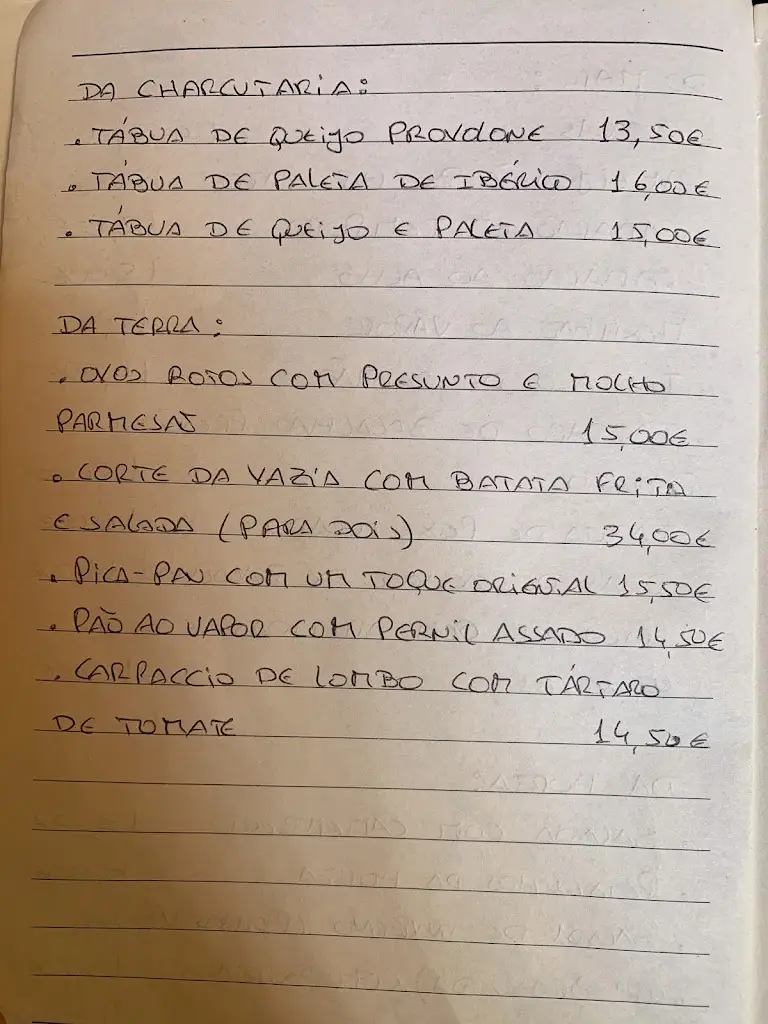 DA CHARCUTARIA:
. TÁBUA DE QUEIJO PROVOLONE 13,50€
. TÁBUA DE PALETA DE IBÉRICO 16,00€
. TÁBUA DE QUEIJO E PALETA 15,00€
DA TERRA:
. OVOS ROTOS COM PRESUNTO E MOLHO
PARMESÃO 15,00€
. CORTE DA VAZIA COM BATATA FRITA
E SALADA (PARA DOIS) 34,00€
. PICA-PAU COM UM TOQUE ORIENTAL 15,50€
. PÃO AO VAPOR COM PERNIL ASSADO 14,50€
. CARPACCIO DE LOMBO COM TÁRTARO
DE TOMATE 14,50€